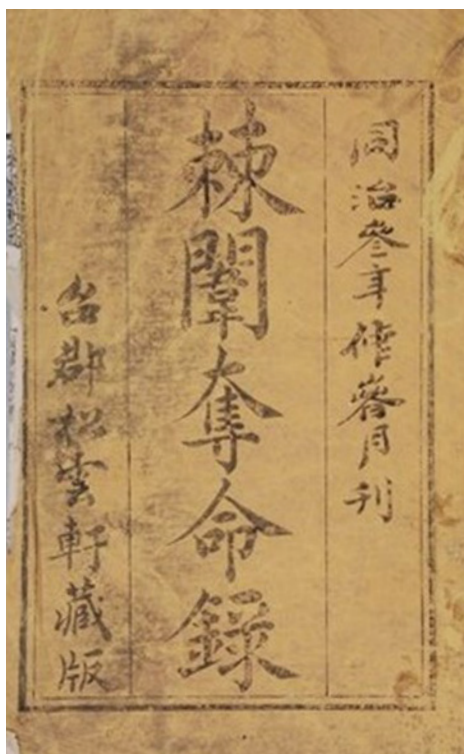 同治叄年作月刊
棘闈奪命錄
台郡松雲軒藏版